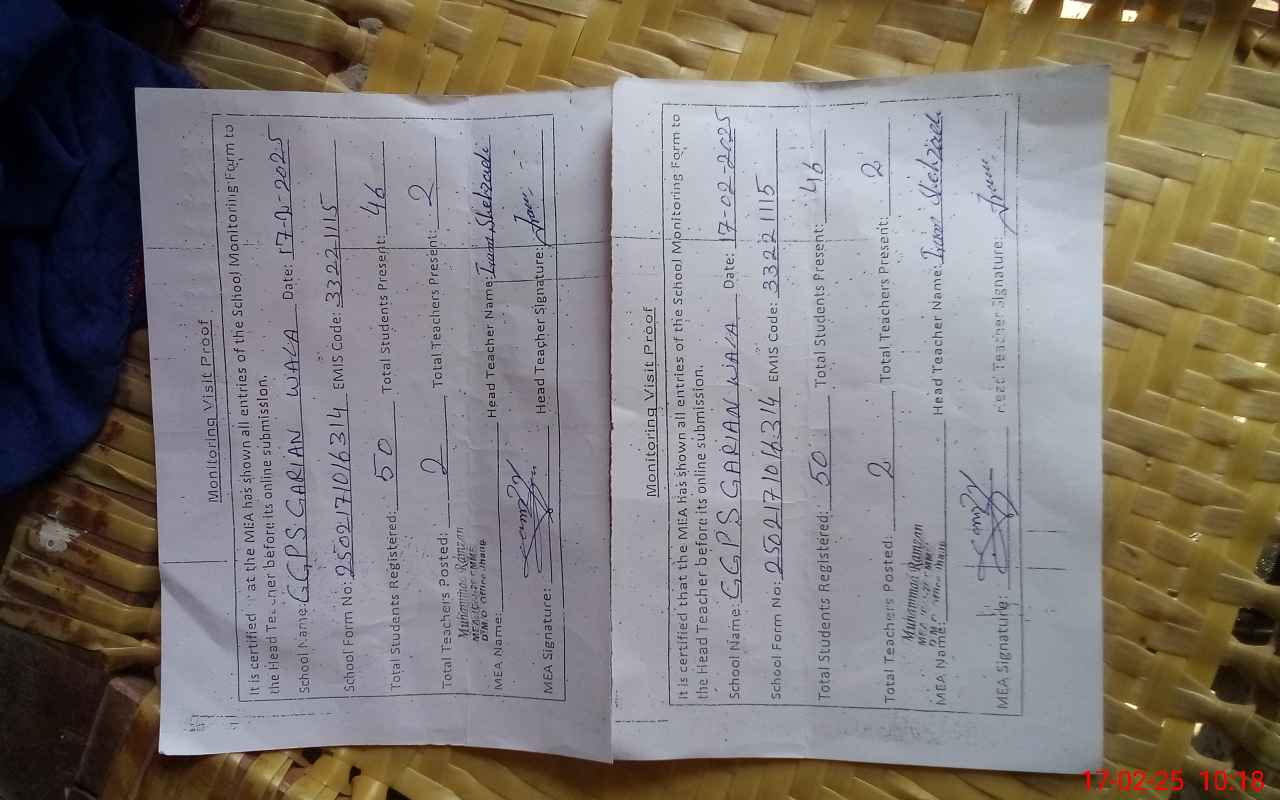 Monitoring Visit Proof
It is certified at the MEA has shown all entries of the School Monitoring Form to
the Head Teacher before its online submission.
School Name: GGPS GARIAN WALA Date: 17-2-2025
School Form No: 2502171016314 EMIS Code: 33221115
Total Students Registered: 50 Total Students Present: 46
Total Teachers Posted: 2 Total Teachers Present: 2
Muhammad Ramzan
MEA Name: Head Teacher Name: Iram Shehzadi
MEA Signature: Head Teacher Signature: Iram
Monitoring Visit Proof
It is certified that the MEA has shown all entries of the School Monitoring Form to
the Head Teacher before its online submission.
School Name: GGPS GARIAN WALA Date: 17-02-2025
School Form No: 2502171016314 EMIS Code: 33221115
Total Students Registered: 50 Total Students Present: 46
Total Teachers Posted: 2 Total Teachers Present: 2
Muhammad Ramzan
MEA Name: Head Teacher Name: Iram Shehzadi
MEA Signature: Head Teacher Signature: Iram
17-02-25 10:18